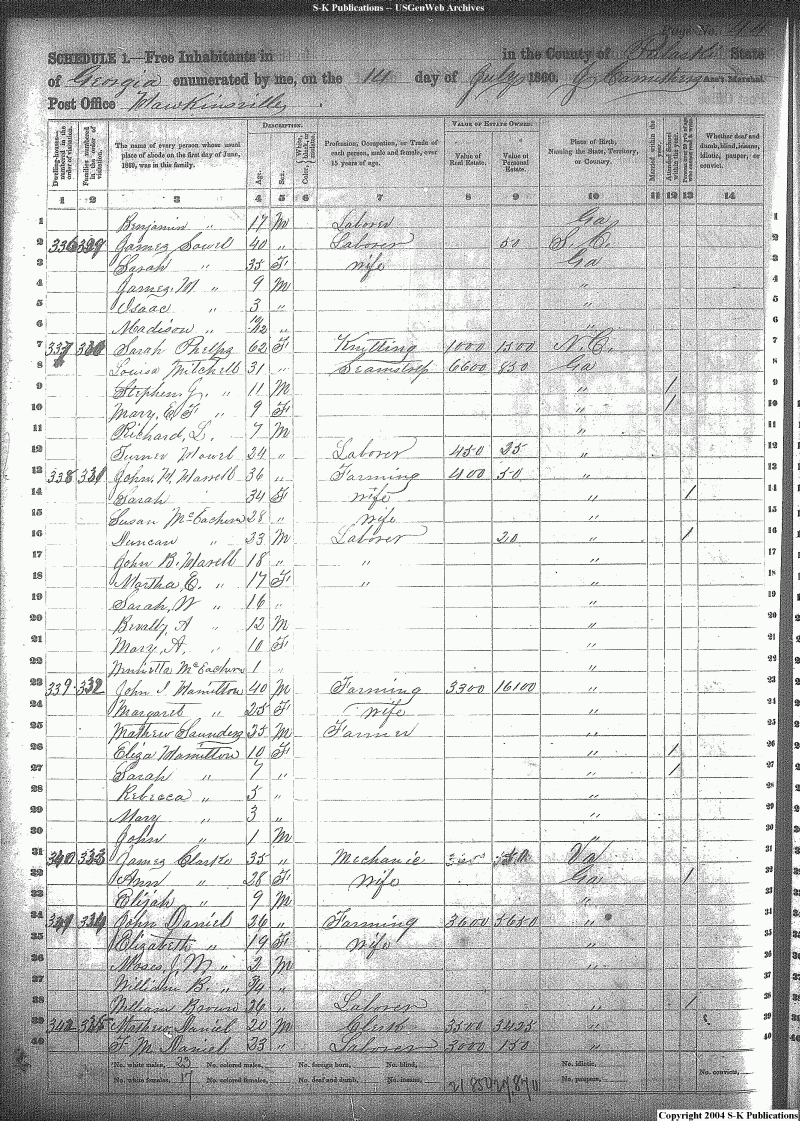 S-K Publications -- USGenWeb Archives
Page No. 44
SCHEDULE 1.—Free Inhabitants in in the County of Pulaski State
of Georgia enumerated by me, on the 14 day of July 1860. Ass't Marshal.
Post Office Hawkinsville
DESCRIPTION. VALUE OF ESTATE OWNED.
Dwelling-houses—numbered in the order of visitation. Families numbered in the order of visitation. The name of every person whose usual place of abode on the first day of June, 1860, was in this family. Age. Sex. Color, White, black, or mulatto. Profession, Occupation, or Trade of each person, male and female, over 15 years of age. Value of Real Estate. Value of Personal Estate. Place of Birth, Naming the State, Territory, or Country. Married within the year. Attended School within the year. Whether deaf and dumb, blind, insane, idiotic, pauper, or convict.
1 2 3 4 5 6 7 8 9 10 11 12 13 14
1 Benjamin " 17 M Laborer Ga 1
2 336 329 James Sowell 40 " Laborer 50 S. C. 2
3 Sarah " 35 F wife Ga 3
4 James, M " 9 M " 4
5 Isaac " 3 " " 5
6 Madison " 10/12 " " 6
7 337 330 Sarah Phelps 62 F Knitting 1000 1500 N. C. 7
8 Louisa Mitchell 31 " Seamstress 6600 850 Ga 8
9 Stephen, J. " 11 M " / 9
10 Mary, E. F " 9 F " / 10
11 Richard, L. 7 M " 11
12 Turner 24 " Laborer 450 25 " 12
13 338 331 John, W. 36 " Farming 400 50 " 13
14 Sarah 34 F wife " / 14
15 Susan McEachern 28 " wife " 15
16 Duncan " 23 M Laborer 20 " / 16
17 John B. 18 " " " 17
18 Martha, E. " 17 F " " 18
19 Sarah, W " 16 " " 19
20 A " 12 M " 20
21 Mary, A. " 10 F " 21
22 Henrietta McEachern 1 " " 22
23 339 332 John I. Hamilton 40 M Farming 3300 16100 " 23
24 Margaret " 25 F wife " 24
25 Mathew Saunders 35 M Farmer " 25
26 Eliza Hamilton 10 F " / 26
27 Sarah " 7 " " / 27
28 Rebecca " 5 " " 28
29 Mary " 3 " " 29
30 John " 1 M " 30
31 340 333 James Clarke 35 " Mechanic Va 31
32 Ann " 28 F Wife Ga / 32
33 Elijah " 9 M " 33
34 341 334 John Daniel 26 " Farming 3600 5650 " 34
35 Elizabeth " 19 F wife " 35
36 Moses, J, M " 2 M " 36
37 William B. " " 37
38 William Brown 26 " Laborer " / 38
39 342 335 Mathew Daniel 20 M Clerk 3500 3425 " 39
40 F. M. Daniel 23 " Laborer 3000 150 " 40
No. white males, 23 No. colored males, No. foreign born, No. blind, No. idiotic,
No. white females, 17 No. colored females, No. deaf and dumb, No. insane, No. paupers, No. convicts,
Copyright 2004 S-K Publications